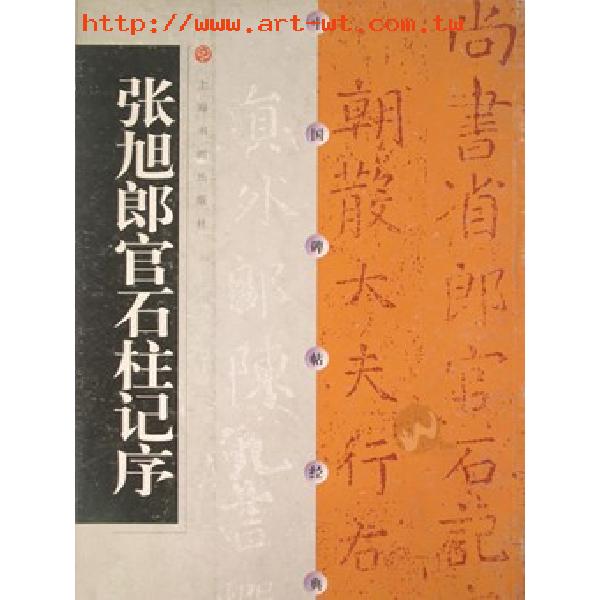 http://www.art-wt.com.tw
张旭郎官石柱记序
上海书画出版社
中国碑帖经典
尚書省郎官石記
朝散太夫行右
員外郎陳九言